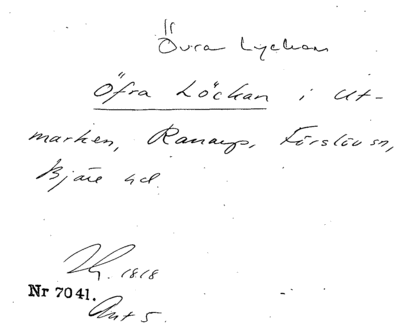 Övra Lyckan
Öfra Löckan i Ut-
marken, Ranarp, Förslöv sn,
Bjäre hd.
1818
Nr 7041.
Akt 5.